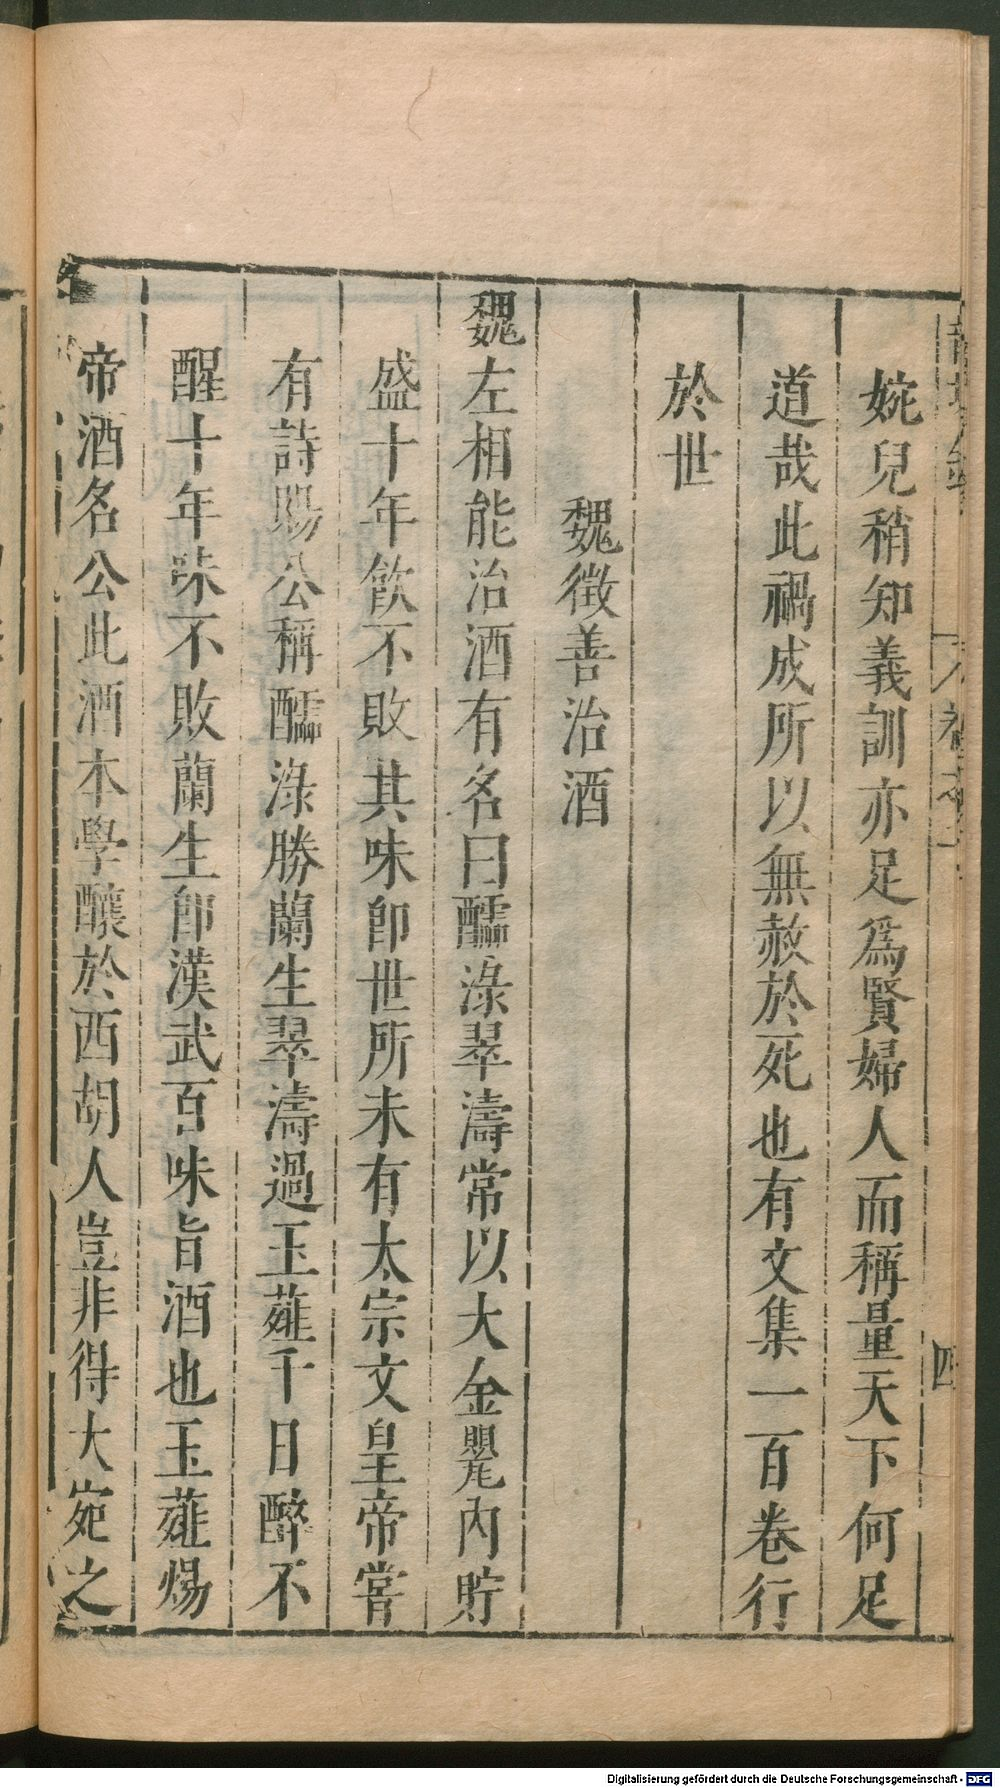 婉兒稍知義訓亦足爲賢婦人而稱量天下何足
道哉此禍成所以無赦於死也有文集一百卷行
於世
魏徵善治酒
魏左相能治酒有名曰醽淥翠濤常以大金甖內貯
盛十年飲不敗其味卽世所未有太宗文皇帝嘗
有詩賜公稱醽淥勝蘭生翠濤過玉薤千日醉不
醒十年味不敗蘭生卽漢武百味旨酒也玉薤煬
帝酒名公此酒本學釀於西胡人豈非得大宛之
四
Digitalisierung gefördert durch die Deutsche Forschungsgemeinschaft - DFG